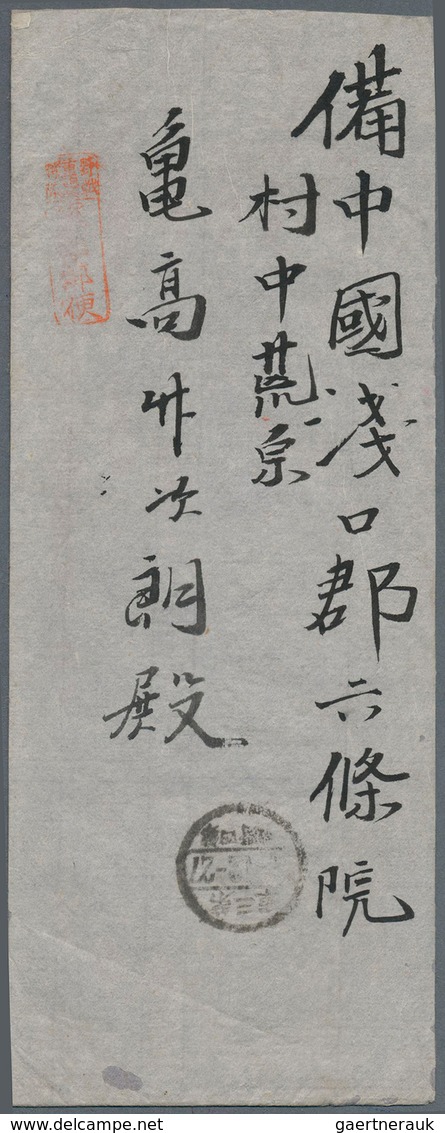 備中國淺口郡六條院
村中荒京
亀高竹次朗殿
郵便
delcampe.net
gaertnerauk